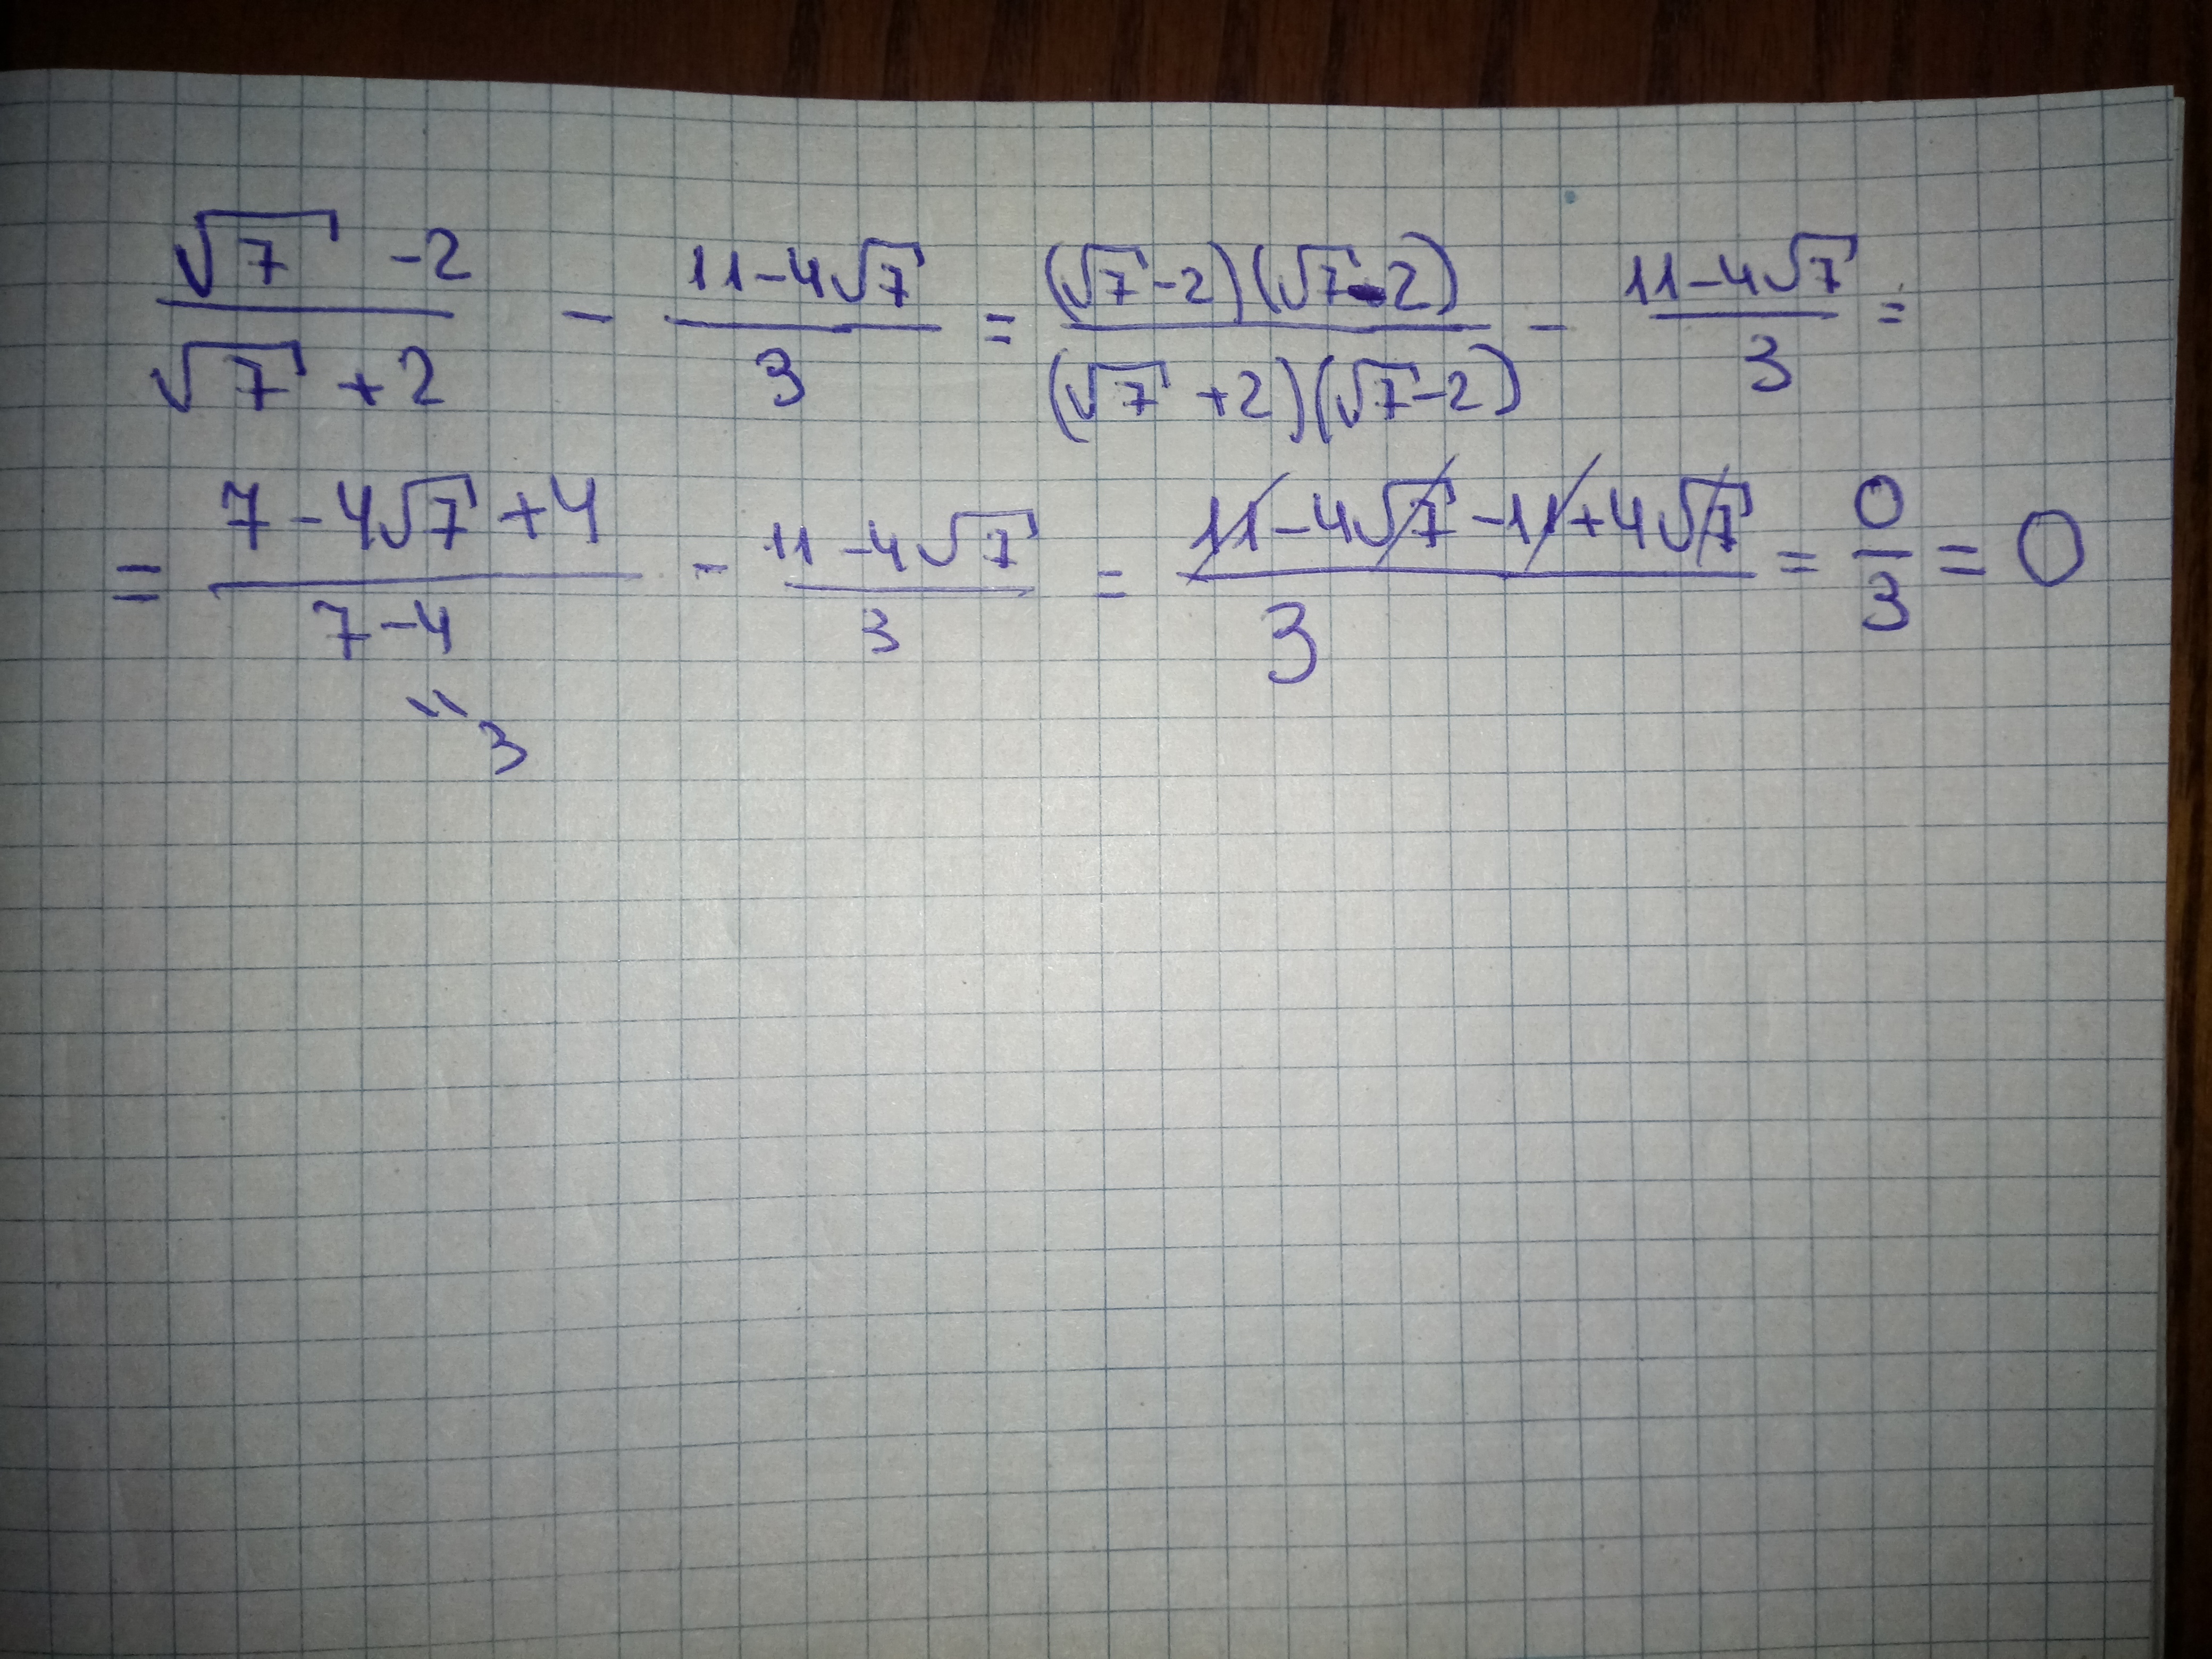 (√7 -2)/(√7 +2) - (11-4√7)/3 = ((√7-2)(√7-2))/((√7 +2)(√7-2)) - (11-4√7)/3 =
= (7-4√7+4)/(7-4) - (11-4√7)/3 = (11-4√7-11+4√7)/3 = 0/3 = 0
= 3